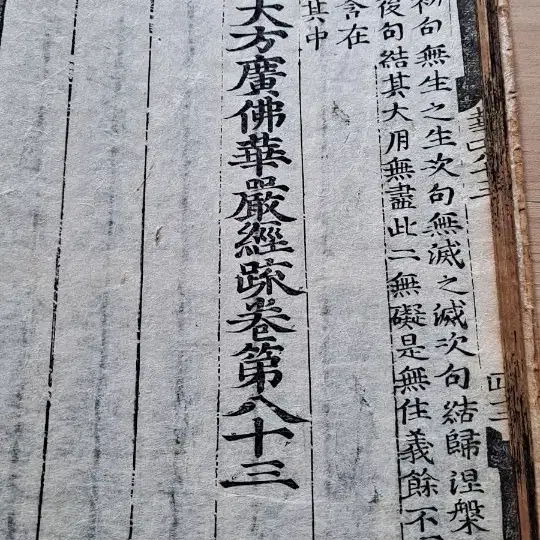 句無生之生次句無滅之滅次句結歸涅槃
後句結其大用無盡此二無礙是無住義餘不
含在
其中
大方廣佛華嚴經疏卷第八十三